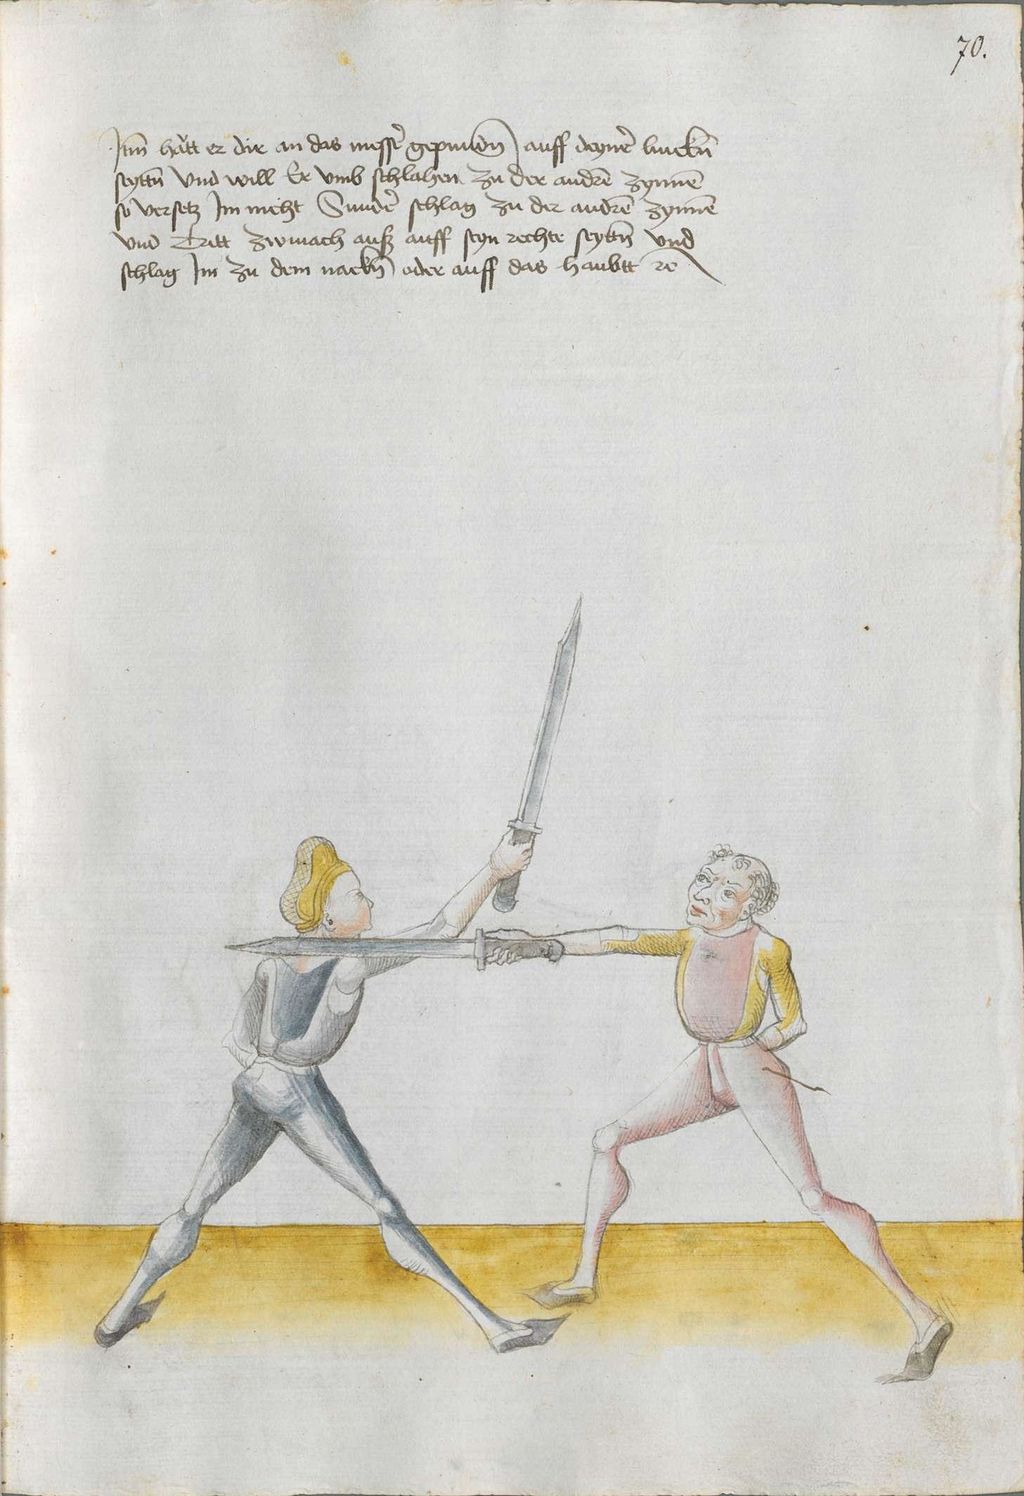 70.
Itm̃ hatt er dir an das messr̃ gepundñ auff deynr̃ linckñ
seyttñ Vnd will Er vmb schlahen zu der andrẽ zynnẽ
so versetz Im nicht Sundr̃ schlag zu der andrẽ zynnẽ
Vnd Tritt zwinach auß auff seyn rechte seyttñ vnd
schlag Im zu dem nackñ oder auff das haubtt rc̃